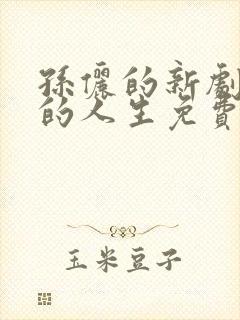 孫儷的新劇
的人生免費
玉米豆子